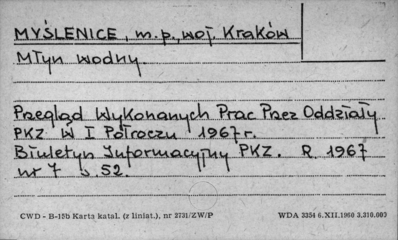 MYŚLENICE, m.p., woj. Kraków
Młyn wodny.
Przegląd Wykonanych Prac Przez Oddziały
PKZ W I Półroczu 1967 r.
Biuletyn Informacyjny PKZ. R. 1967
nr 7 s 52.
CWD - B-15b Karta katal. (z liniat.), nr 2731/ZW/P
WDA 3354 6.XII.1960 3.210.000